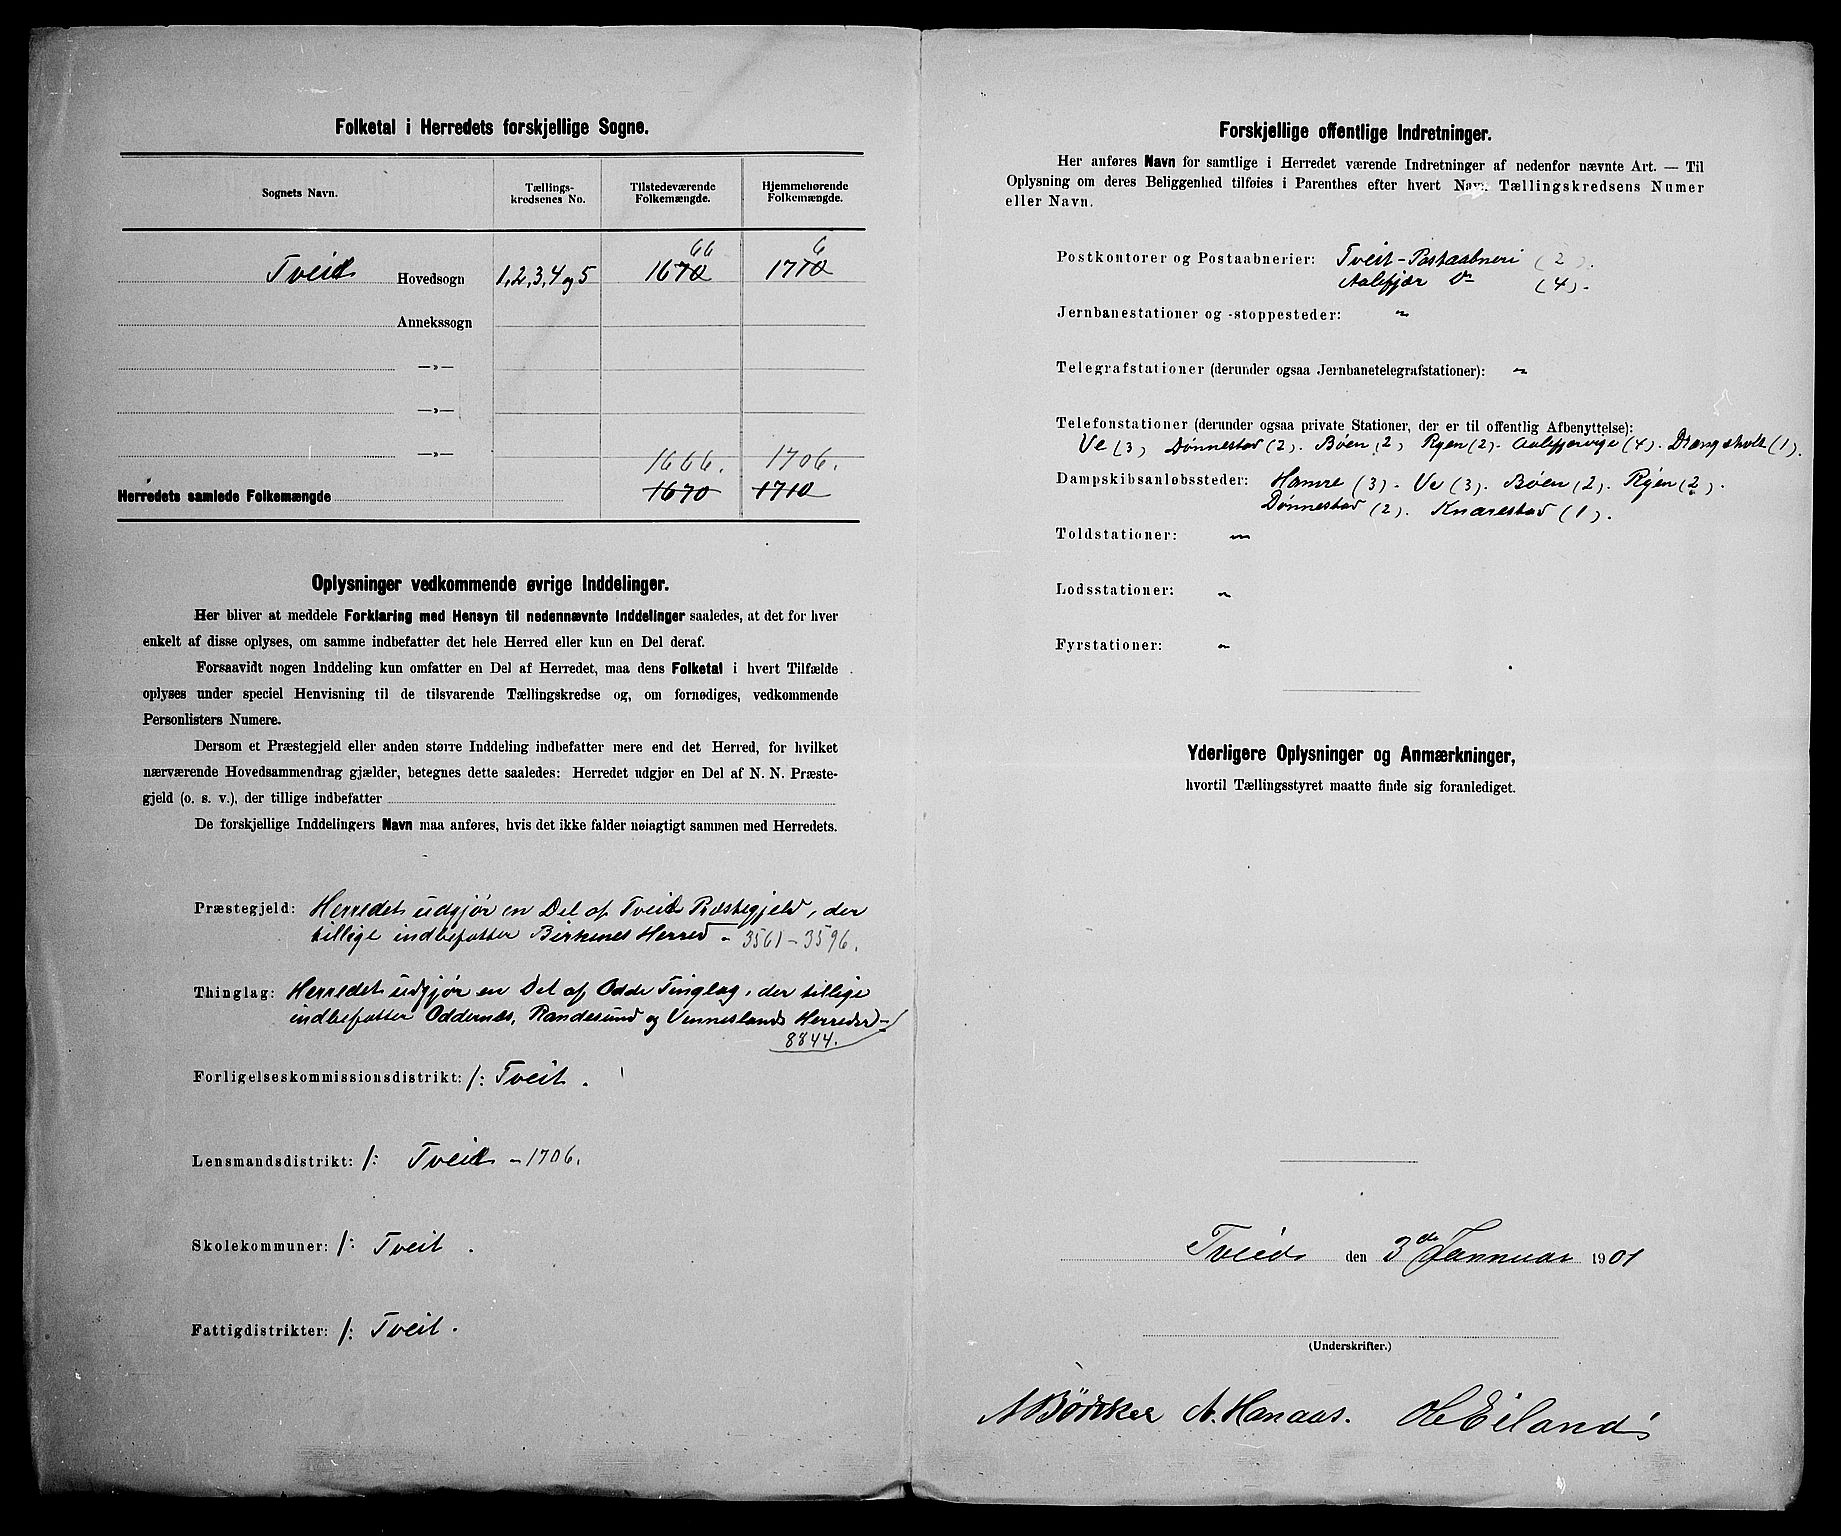 Folketal i Herredets forskjellige Sogne.
Sognets Navn.
Tællings-
kredsenes No.
Tilstedeværende
Folkemængde.
Hjemmehørende
Folkemængde.
66 6
Tveit Hovedsogn 1, 2, 3, 4 og 5 1670 1710
Annekssogn
—»—
—»—
—»— 1666. 1706.
Herredets samlede Folkemængde 1670 1710
Oplysninger vedkommende øvrige Inddelinger.
Her bliver at meddele Forklaring med Hensyn til nedennævnte Inddelinger saaledes, at det for hver
enkelt af disse oplyses, om samme indbefatter det hele Herred eller kun en Del deraf.
Forsaavidt nogen Inddeling kun omfatter en Del af Herredet, maa dens Folketal i hvert Tilfælde
oplyses under speciel Henvisning til de tilsvarende Tællingskredse og, om fornødiges, vedkommende
Personlisters Numere.
Dersom et Præstegjeld eller anden større Inddeling indbefatter mere end det Herred, for hvilket
nærværende Hovedsammendrag gjælder, betegnes dette saaledes: Herredet udgjør en Del af N. N. Præste-
gjeld (o. s. v.), der tillige indbefatter
De forskjellige Inddelingers Navn maa anføres, hvis det ikke falder nøiagtigt sammen med Herredets.
Præstegjeld: Herredet udgjør en Del af Tveit Præstegjeld, der
tillige indbefatter Birkenes Herred - 3561 - 3596.
Thinglag: Herredet udgjør en Del af Odde Tinglag, der tillige
indbefatter Oddernæs, Randesund og Venneslands Herreder -
8844.
Forligelseskommissionsdistrikt: /: Tveit.
Lensmandsdistrikt: /: Tveit - 1706.
Skolekommuner: /: Tveit.
Fattigdistrikter: /: Tveit.
Forskjellige offentlige Indretninger.
Her anføres Navn for samtlige i Herredet værende Indretninger af nedenfor nævnte Art. — Til
Oplysning om deres Beliggenhed tilføies i Parenthes efter hvert Navn Tællingskredsens Numer
eller Navn.
Postkontorer og Postaabnerier: Tveit-Postaabneri (2).
Aalefjær Do (4).
Jernbanestationer og -stoppesteder: "
Telegrafstationer (derunder ogsaa Jernbanetelegrafstationer): "
Telefonstationer (derunder ogsaa private Stationer, der er til offentlig Afbenyttelse):
Ve (3) Dønnestad (2). Bøen (2) Ryen (2). Aalefjærvige (4). Drangsholt (1).
Dampskibsanløbssteder: Hamre (3). Ve (3). Bøen (2). Ryen (2).
Dønnestad (2). Knarestad (1).
Toldstationer: "
Lodsstationer: "
Fyrstationer: "
Yderligere Oplysninger og Anmærkninger,
hvortil Tællingsstyret maatte finde sig foranlediget.
Tveid den 3de Januar 1901
(Underskrifter.)
A Bødtker A. Hanaas. O Eiland